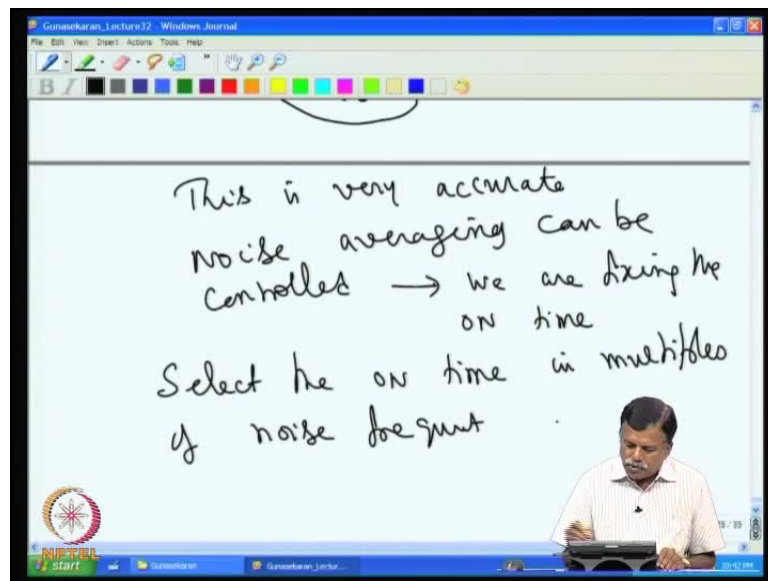 Gunasekaran_Lecture32 - Windows Journal
File Edit View Insert Actions Tools Help
B I
This is very accurate
noise averaging can be
controlled → we are fixing the
ON time
Select the ON time in multiples
of noise frequent
NPTEL
start Gunasekaran Gunasekaran_Lectur... 10:42 PM